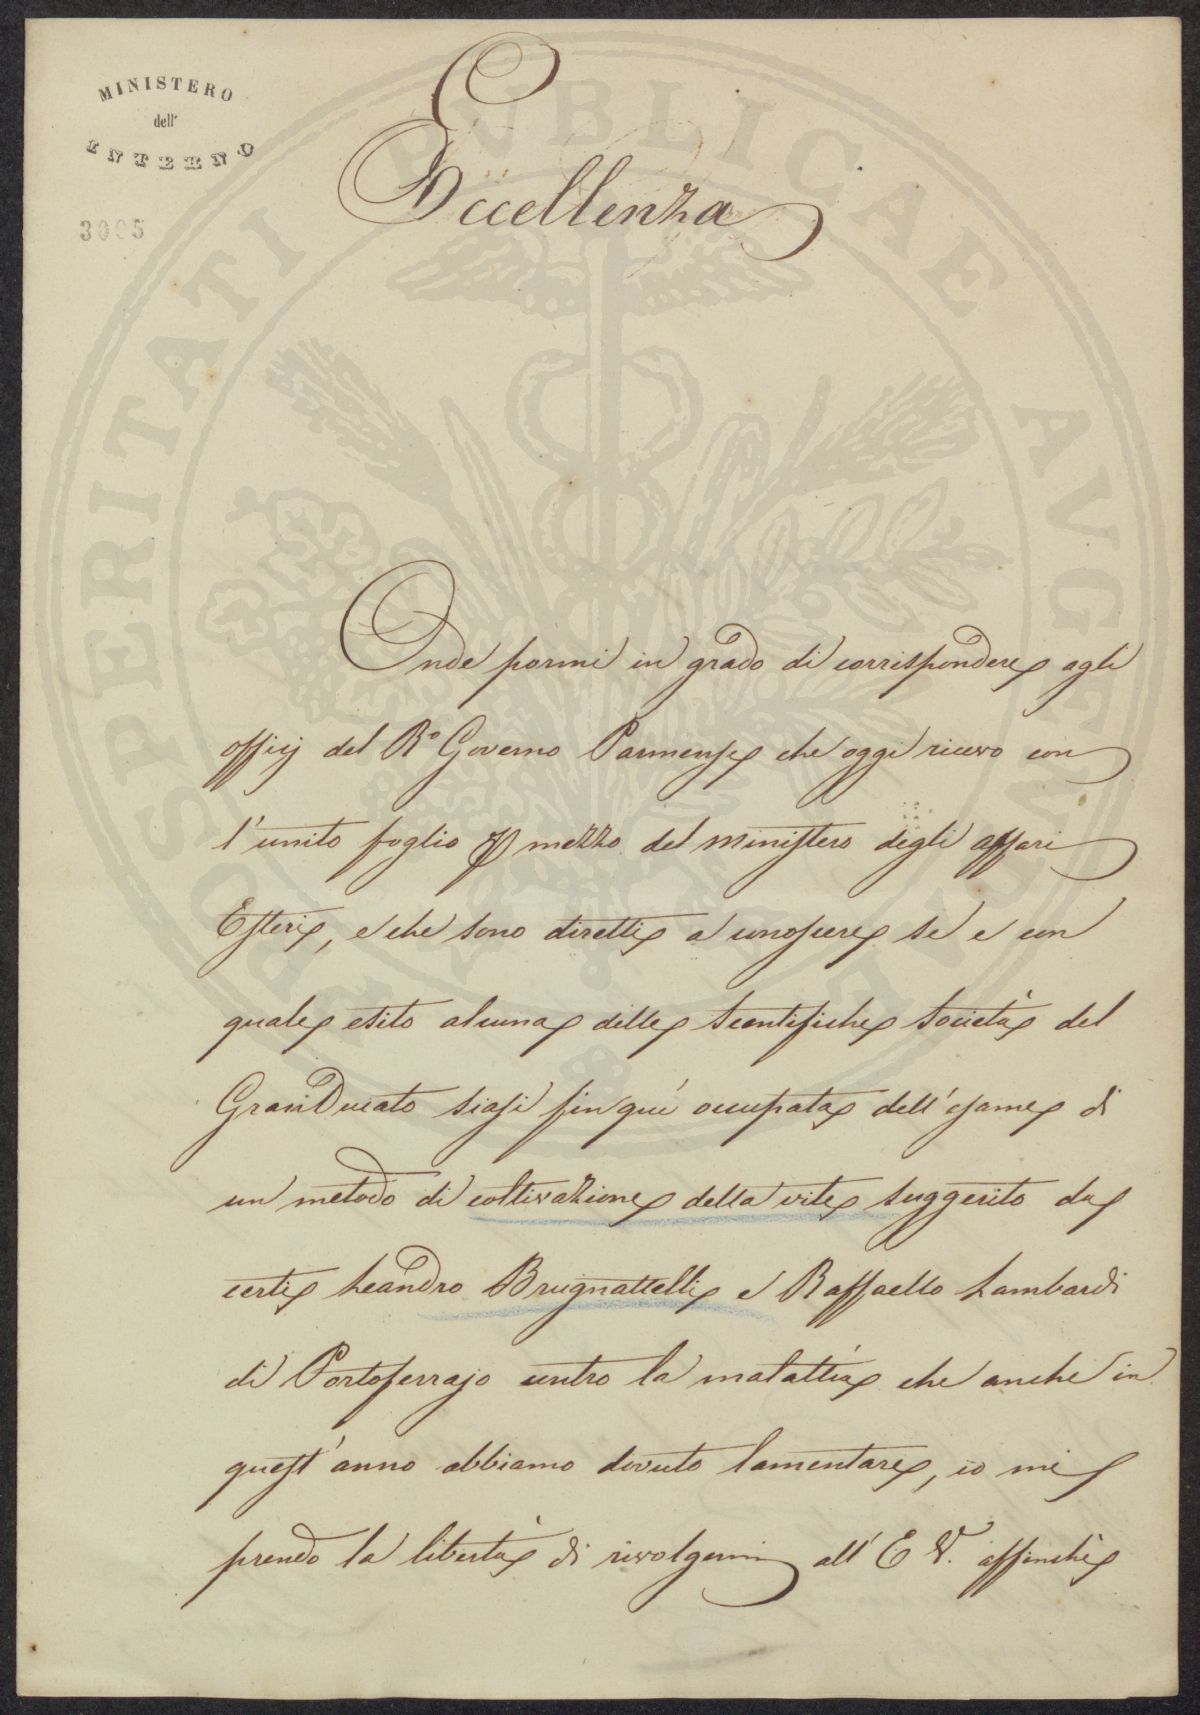 MINISTERO
dell'
INTERNO
3005
Eccellenza
Onde pormi in grado di corrispondere agli
officj del R.o Governo Parmense che oggi ricevo con
l'unito foglio p mezzo del Ministero degli affari
Esteri, e che sono diretti a conoscere se e con
quale esito alcuna delle Scentifiche Società del
GranDucato siasi fin quì occupata dell'esame di
un metodo di coltivazione della vite suggerito da
certi Leandro Brugnattelli e Raffaello Lambardi
di Portoferrajo contro la malattia che anche in
quest'anno abbiamo dovuto lamentare, io mi
prendo la libertà di rivolgermi all'E V. affinchè
PROSPERITATI PUBLICAE AVGENDAE